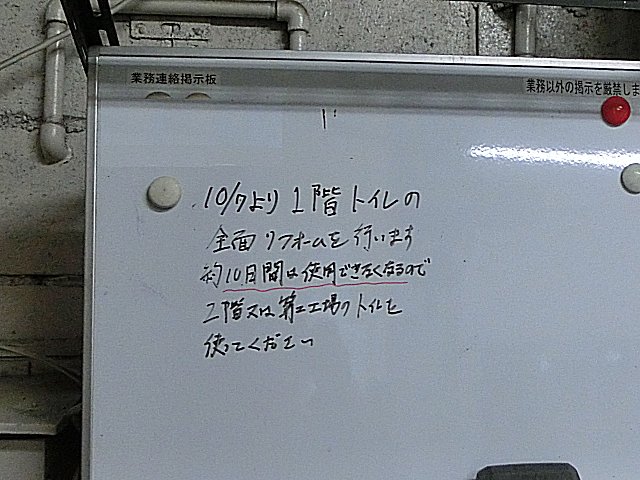 業務連絡掲示板
業務以外の掲示を厳禁しま
10/7より1階トイレの
全面リフォームを行います
約10日間は使用できなくなるので
2階又は第二工場のトイレを
使ってください